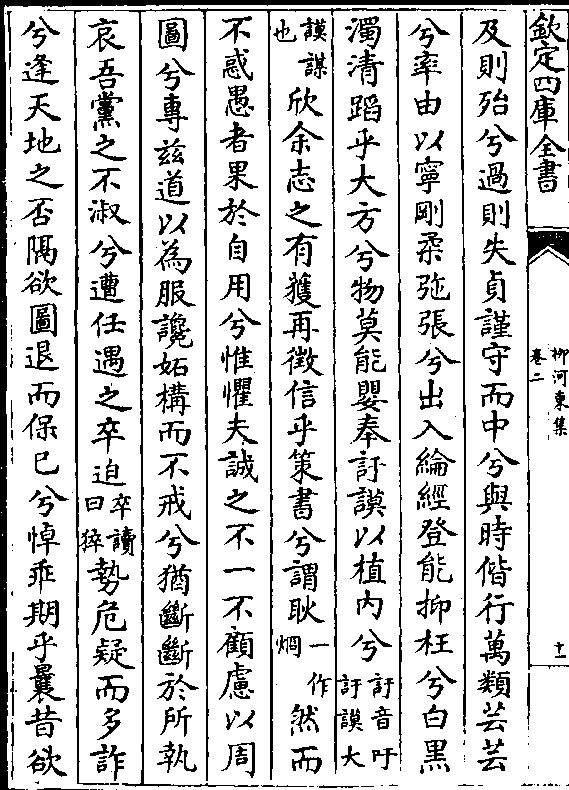 欽定四庫全書
柳河東集
卷二
十一
及則殆兮過則失貞謹守而中兮與時偕行萬類芸芸
兮率由以寧剛柔弛張兮出入綸經登能抑枉兮白黑
濁清蹈乎大方兮物莫能嬰奉訏謨以植内兮訏音吁訏謨大
謨謀也欣余志之有獲再徵信乎策書兮謂耿一作烱然而
不惑愚者果於自用兮惟懼夫誠之不一不顧慮以周
圖兮專兹道以為服讒妬構而不戒兮猶斷斷於所執
哀吾黨之不淑兮遭任遇之卒迫卒讀曰猝勢危疑而多詐
兮逢天地之否隔欲圖退而保已兮悼乖期乎曩昔欲